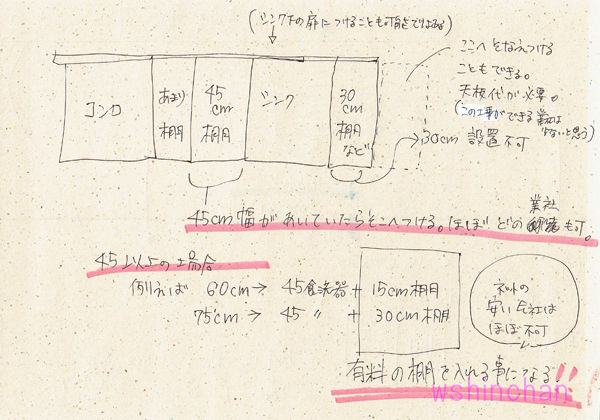 (シンク下の扉につけることも可能ではある)
コンロ
あまり
棚
45
cm
棚
シンク
30
cm
棚
など
ここへそなえつける
こともできる。
天板代が必要。
(この工事ができる業社は
少ないと思う)
30cm 設置不可
45cm幅があいていたらそこへつける。ほぼどの業社も可。
45以上の場合
例えば 60cm→ 45食洗器 + 15cm棚
75cm→ 45 〃 + 30cm棚
ネットの
安い会社は
ほぼ不可
有料の棚を入れる事になる!!
wshinchan